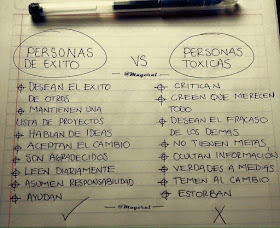 PERSONAS
DE EXITO
VS
PERSONAS
TOXICAS
@Mageral
DESEAN EL EXITO
DE OTROS
MANTIENEN UNA
LISTA DE PROYECTOS
HABLAN DE IDEAS
ACEPTAN EL CAMBIO
SON AGRADECIDOS
LEEN DIARIAMENTE
ASUMEN RESPONSABILIDAD
AYUDAN
CRITICAN
CREEN QUE MERECEN
TODO
DESEAN EL FRACASO
DE LOS DEMAS
NO TIENEN METAS
OCULTAN INFORMACION
VERDADES A MEDIAS
TEMEN AL CAMBIO
ESTORBAN
@Mageral